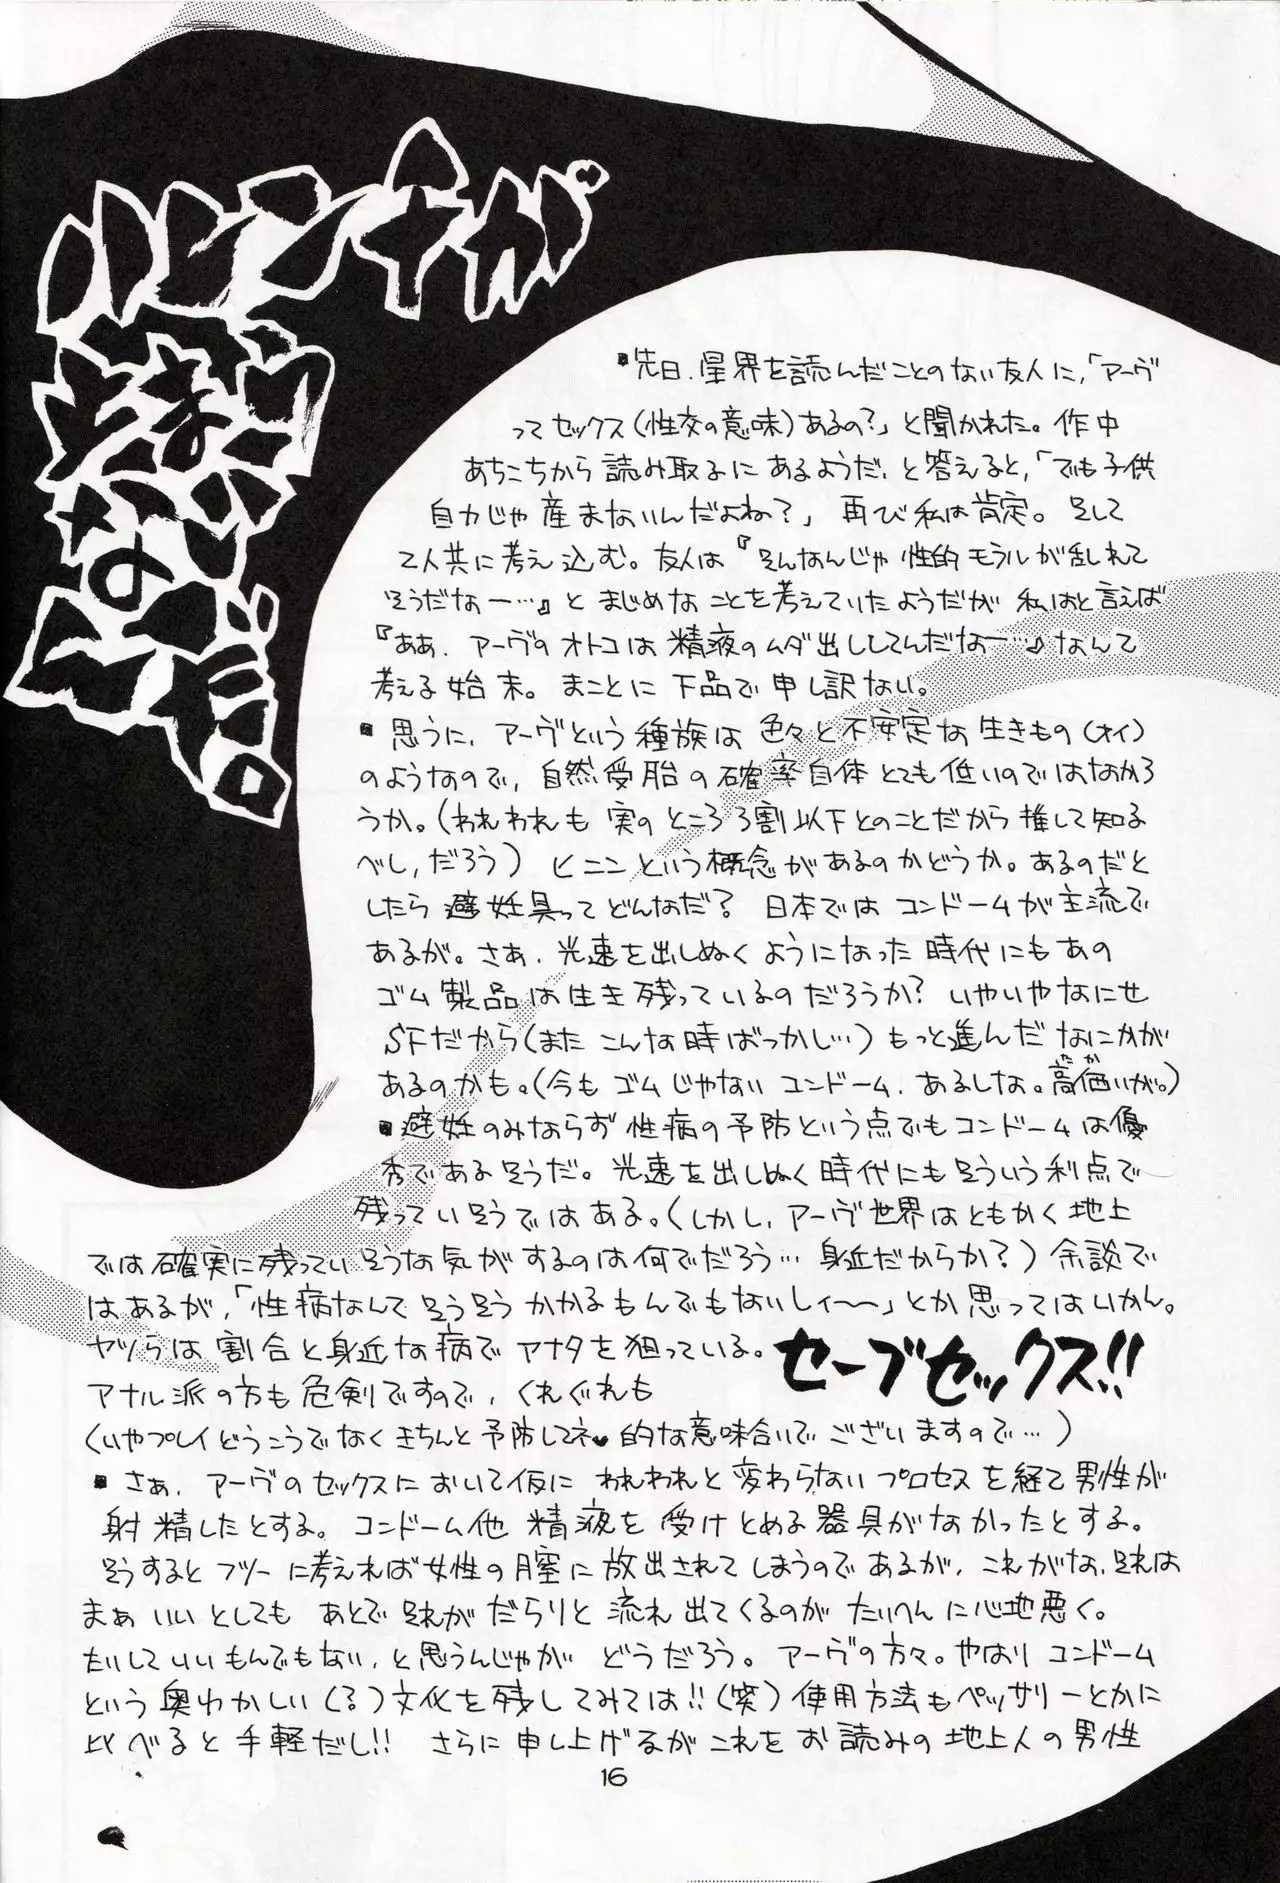 ハレンチが
とまらナ
なイ
んだ。
■先日、星界を読んだことのない友人に、「アーヴ
ってセックス(性交の意味)あるの?」と聞かれた。作中
あちこちから読み取るにあるようだ、と答えると、「でも子供
自力じゃ産まないんだよね?」再び私は肯定。そして
2人共に考え込む。友人は『そんなんじゃ性的モラルが乱れて
そうだなー…』とまじめなことを考えていたようだが私はと言えば
『ああ、アーヴのオトコは精液のムダ出ししてんだなー…』なんて
考える始末。まことに下品で申し訳ない。
■思うに、アーヴという種族は色々と不安定な生きもの(オイ)
のようなので、自然受胎の確率自体とても低いのではなかろ
うか。(われわれも実のところ3割以下とのことだから推して知る
べし、だろう)ヒニンという概念があるのかどうか。あるのだと
したら避妊具ってどんなだ?日本ではコンドームが主流で
あるが。さあ、光速を出しぬくようになった時代にもあの
ゴム製品は生き残っているのだろうか?いやいやなにせ
SFだから(またこんな時ばっかし…)もっと進んだなにかが
あるのかも。(今もゴムじゃないコンドーム、あるしな。高価いが。)
たか
■避妊のみならず性病の予防という点でもコンドームは優
秀であるそうだ。光速を出しぬく時代にもそういう利点で
残っていそうではある。(しかし、アーヴ世界はともかく地上
では確実に残っていそうな気がするのは何でだろう…身近だからか?)余談で
はあるが、「性病なんてそうそうかかるもんでもないしィ〜〜」とか思ってはいかん。
ヤツらは割合と身近な病でアナタを狙っている。セーブセックス!!
アナル派の方も危剣ですので、くれぐれも
(いやプレイどうこうでなくきちんと予防してネ♥的な意味合いでございますので…)
■さあ、アーヴのセックスにおいて仮にわれわれと変わらないプロセスを経て男性が
射精したとする。コンドーム他精液を受けとめる器具がなかったとする。
そうするとフツーに考えれば女性の膣に放出されてしまうのであるが、これがな、それは
まぁいいとしてもあとでそれがだらりと流れ出てくるのがたいへんに心地悪く。
たいしていいもんでもない、と思うんじゃがどうだろう。アーヴの方々。やはりコンドーム
という奥ゆかしい(る)文化を残してみては!!(笑)使用方法もペッサリーとかに
比べると手軽だし!!さらに申し上げるがこれをお読みの地上人の男性
16